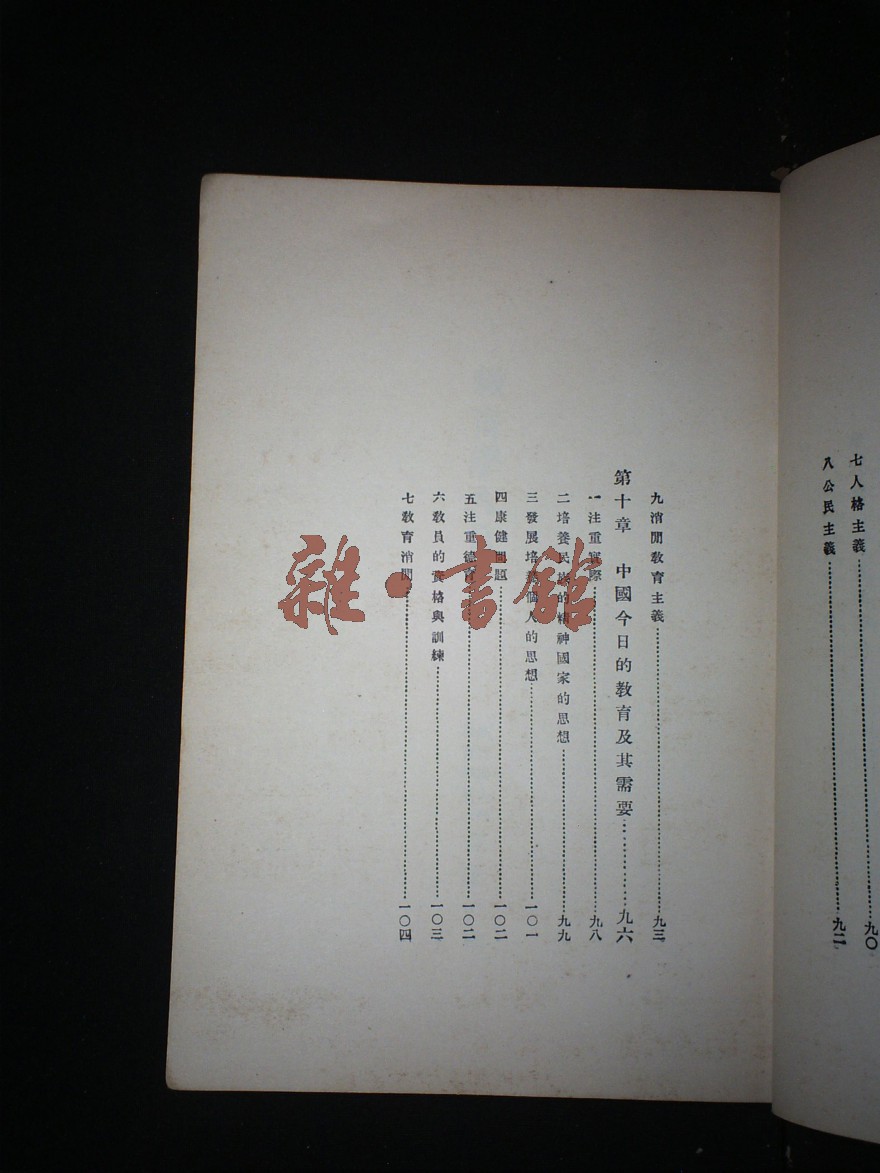 七人格主義……九〇
八公民主義……九二
九消閒教育主義……九三
第十章 中國今日的教育及其需要……九六
一注重實際……九八
二培養民族的精神國家的思想……九九
三發展培養個人的思想……一〇一
四康健問題……一〇二
五注重德育……一〇二
六教員的資格與訓練……一〇三
七教育消閒……一〇四
雜·書館